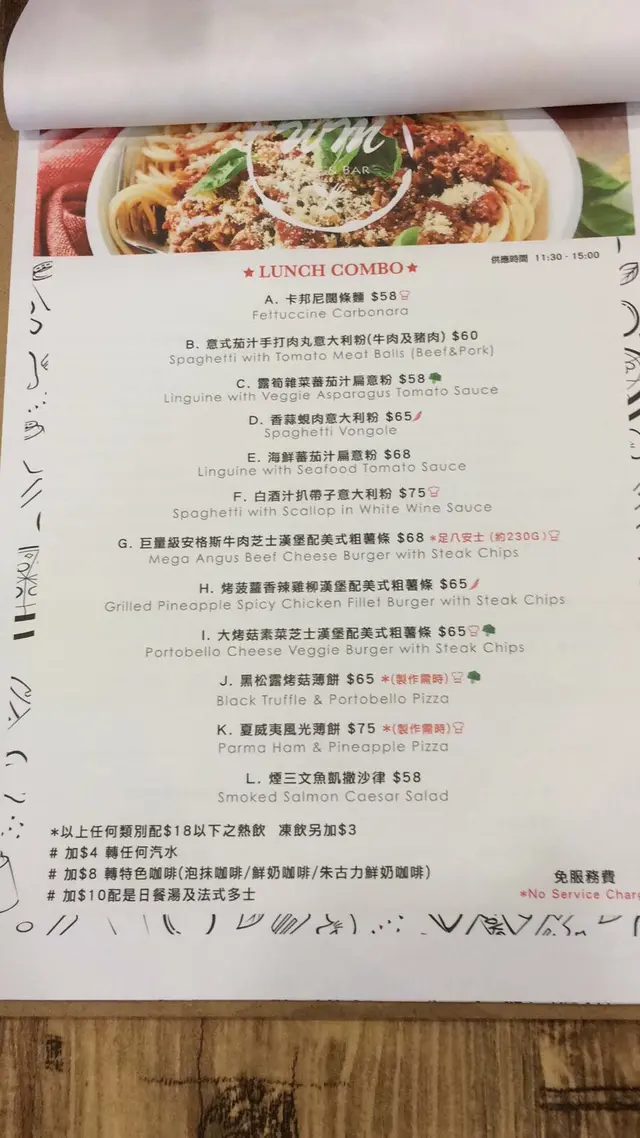 & BAR
供應時間 11:30 - 15:00
★LUNCH COMBO★
A. 卡邦尼闊條麵 $58
Fettuccine Carbonara
B. 意式茄汁手打肉丸意大利粉(牛肉及豬肉) $60
Spaghetti with Tomato Meat Balls (Beef&Pork)
C. 露筍雜菜蕃茄汁扁意粉 $58
Linguine with Veggie Asparagus Tomato Sauce
D. 香蒜蜆肉意大利粉 $65
Spaghetti Vongole
E. 海鮮蕃茄汁扁意粉 $68
Linguine with Seafood Tomato Sauce
F. 白酒汁扒帶子意大利粉 $75
Spaghetti with Scallop in White Wine Sauce
G. 巨量級安格斯牛肉芝士漢堡配美式粗薯條 $68 *足八安士 (約230G)
Mega Angus Beef Cheese Burger with Steak Chips
H. 烤菠蘿香辣雞柳漢堡配美式粗薯條 $65
Grilled Pineapple Spicy Chicken Fillet Burger with Steak Chips
I. 大烤菇素菜芝士漢堡配美式粗薯條 $65
Portobello Cheese Veggie Burger with Steak Chips
J. 黑松露烤菇薄餅 $65 *(製作需時)
Black Truffle & Portobello Pizza
K. 夏威夷風光薄餅 $75 *(製作需時)
Parma Ham & Pineapple Pizza
L. 煙三文魚凱撒沙律 $58
Smoked Salmon Caesar Salad
*以上任何類別配$18以下之熱飲 凍飲另加$3
# 加$4 轉任何汽水
# 加$8 轉特色咖啡(泡抹咖啡/鮮奶咖啡/朱古力鮮奶咖啡)
# 加$10配是日餐湯及法式多士
免服務費
*No Service Charg